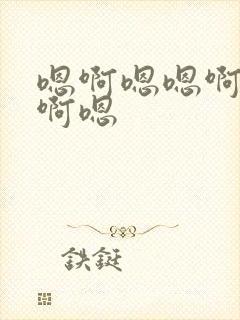 嗯啊嗯嗯啊
啊嗯
鉄鋋